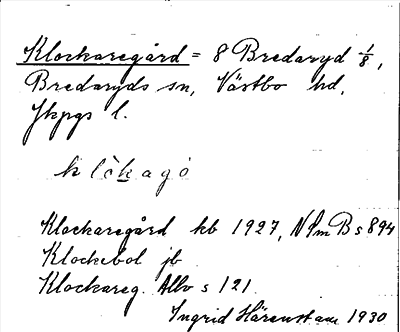 Klockaregård = 8 Bredaryd 1/8,
Bredaryds sn, Västbo hd,
Jkpgs l.
klòkagò
Klockaregård kb 1927, NSmB s 894
Klockebol jb
Klockareg. Allv s 121.
Ingrid Härenstam 1930